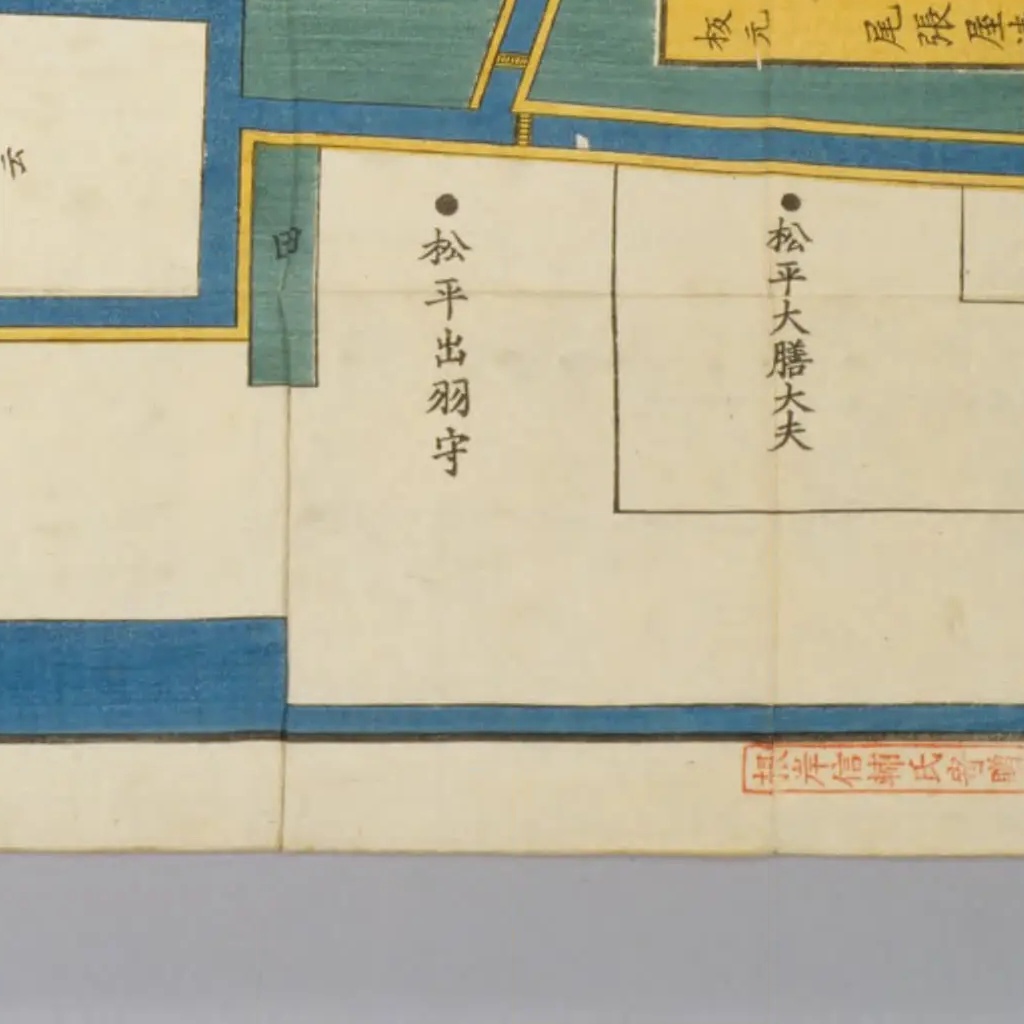 板元
尾張屋
松平大膳大夫
松平出羽守
田
云
岸信輔氏寄贈